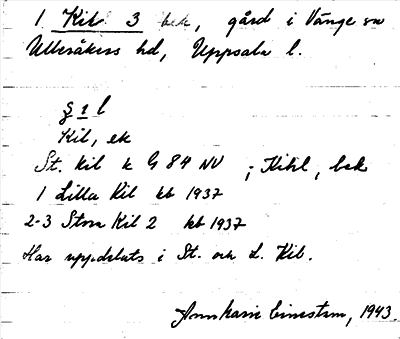 1 Kil 3 bek, gård i Vänge sn
Ulleråkers hd, Uppsala l.
Kil, ek
St. Kil k G 84 NV ; Kihl, bek
1 Lilla Kil kb 1937
2-3 Stora Kil 2 kb 1937
Har uppdelats i St. och L. Kil.
Ann Marie 1943.